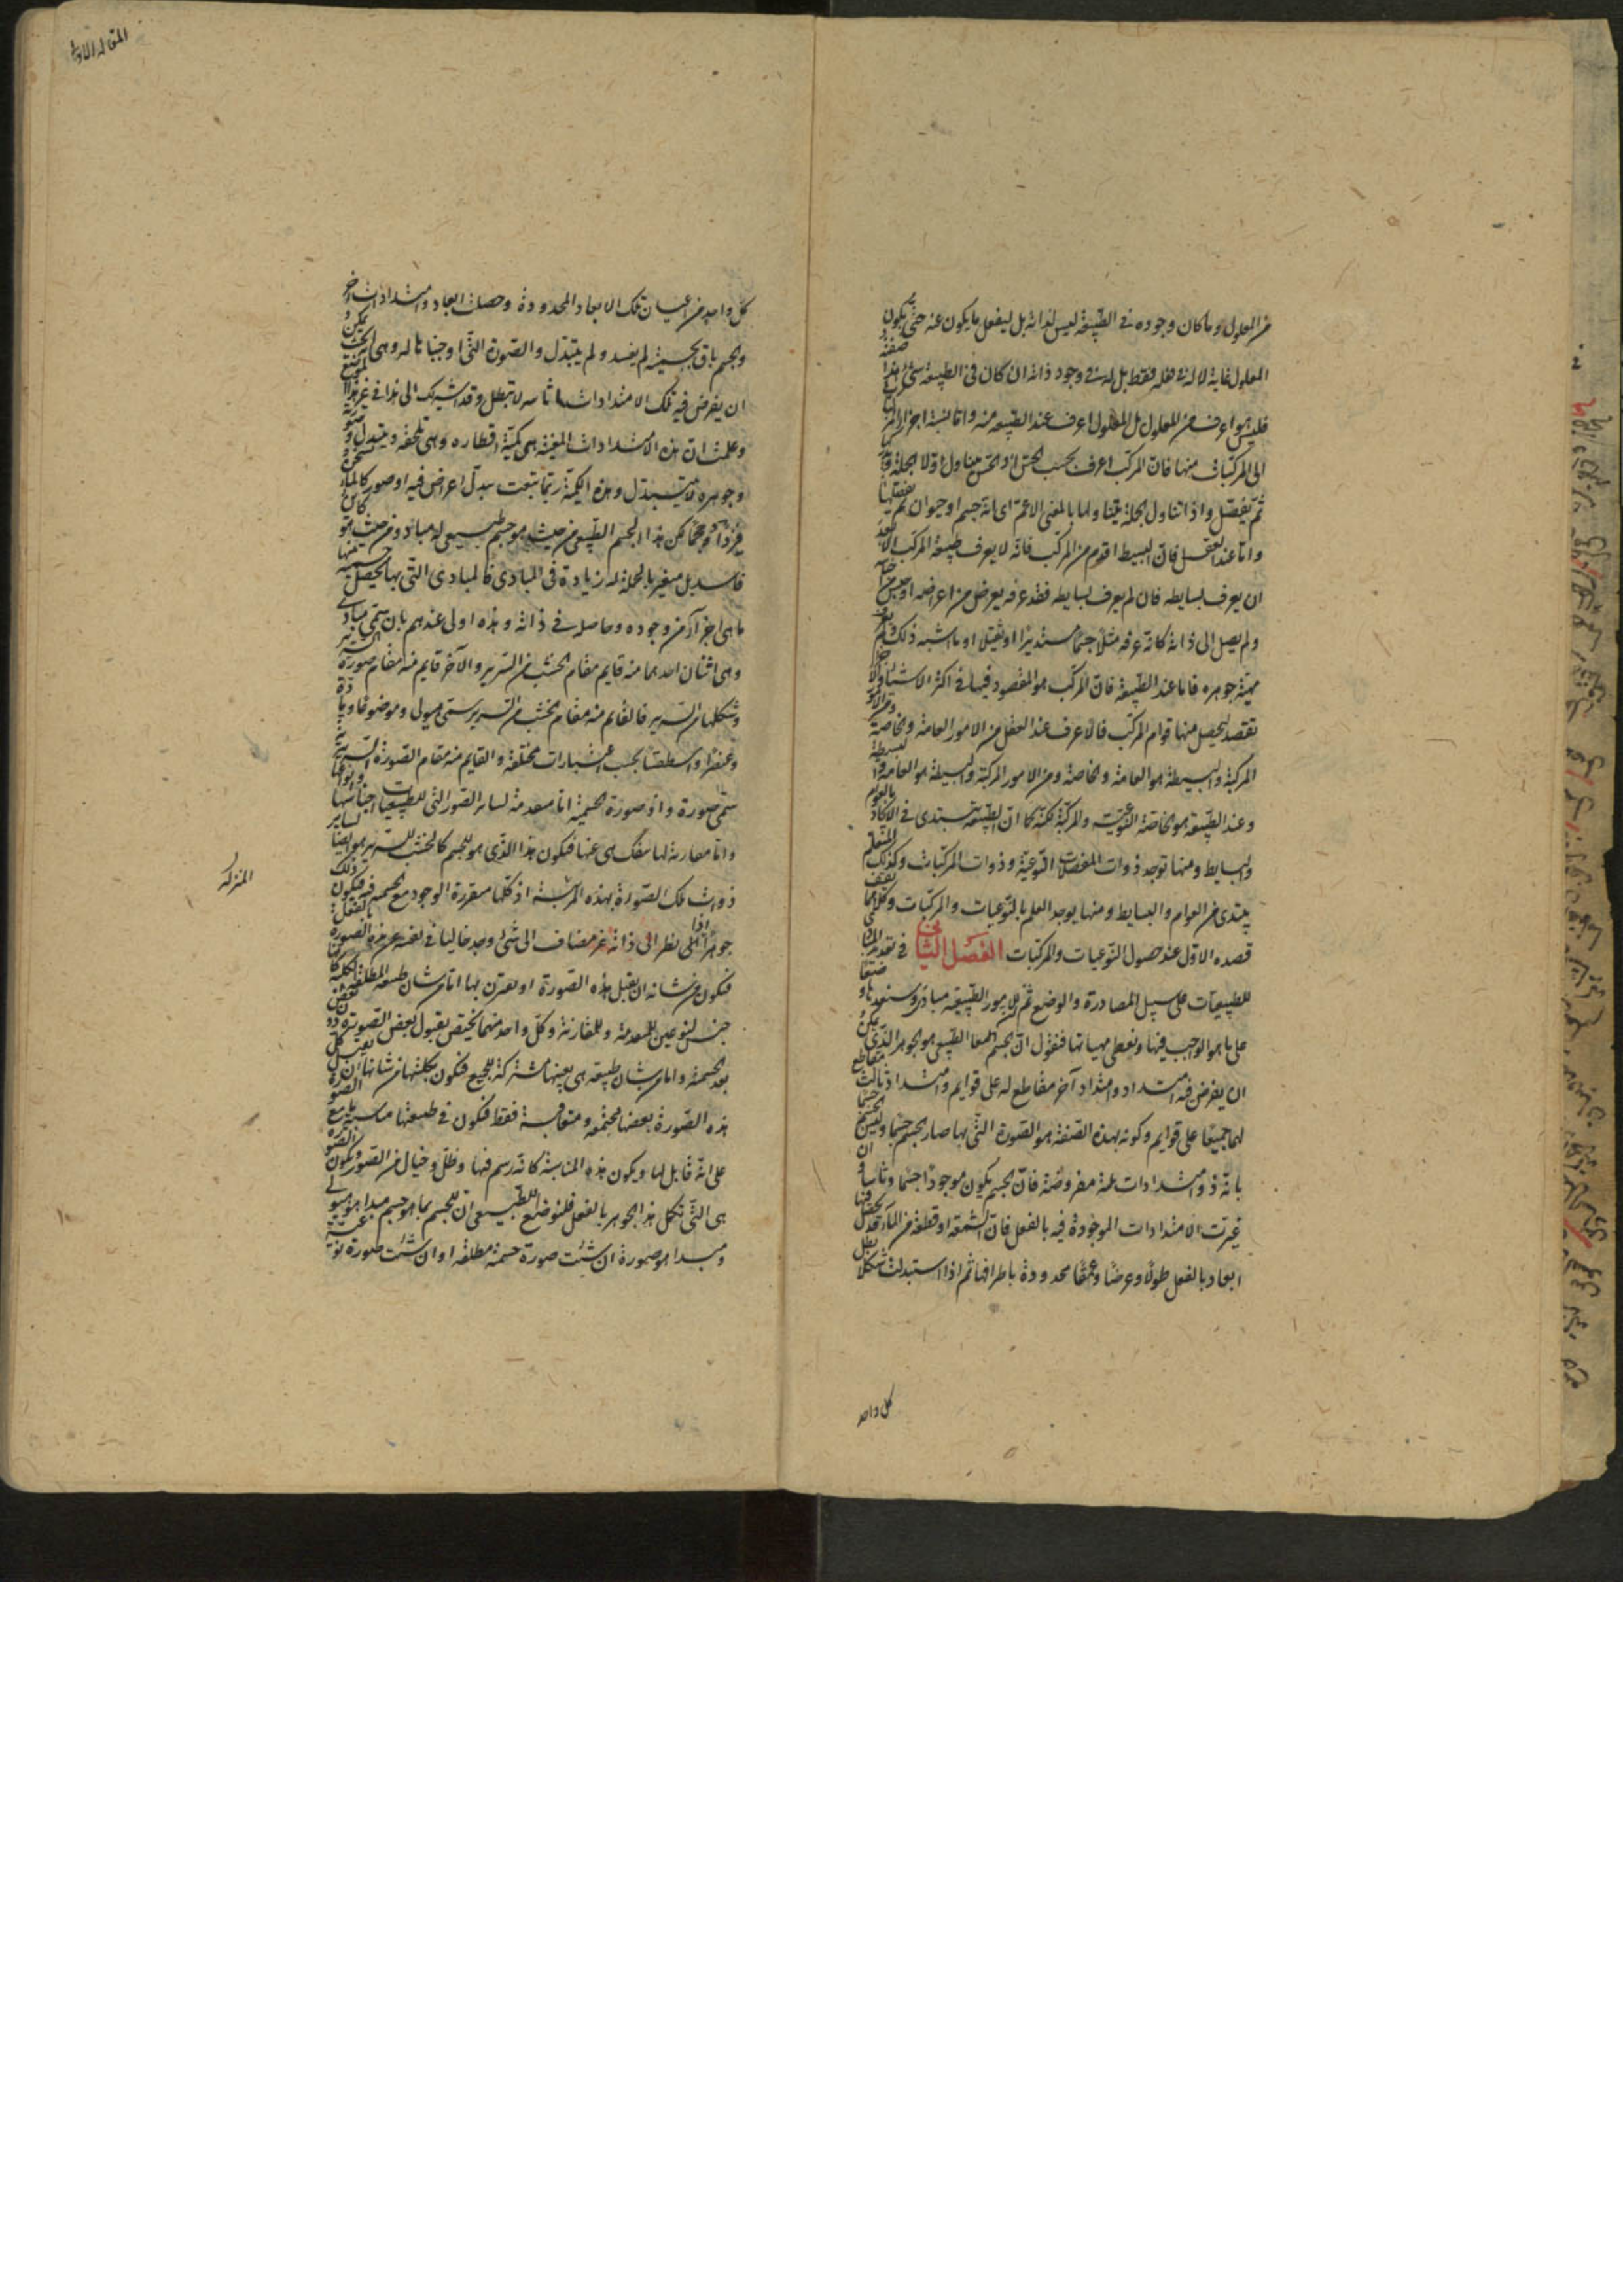 من المعلول وما كان وجوده فى الطبيعة ليس لذاته بل ليفعل ما يكون عنه حتى يكون
المعلول غاية لا له فى فعله فقط بل له فى وجود ذاته ان كان فى الطبيعة شئ هذا صفته
فليس هو اعرف من المعلول بل المعلول اعرف عند الطبيعة منه واما نسبة اجزاء
الى المركبات منها فان المركب اعرف بحسب الحس اذ الحس يتناول اولا الجملة
ثم يفصل واذا تناول الجملة تناولها بالمعنى الاعم اى انه جسم او حيوان ثم يفصلها
واما عند العقل فان البسيط اقدم من المركب فانه لا يعرف طبيعة المركب الا بعد
ان يعرف بسايطه فان لم يعرف بسايطه فقد عرفه بعرض من اعراضه او جنس من
ولم يصل الى ذاته كانه عرفه مثلا جسما مستديرا او ثقيلا او ما اشبه ذلك ولم يعرف
مهية جوهره فاما عند الطبيعة فان المركب هو المقصود فيها فى اكثر الاشياء والاجزاء
تقصد ليحصل منها قوام المركب فالاعرف عند العقل من الامور العامة والخاصة ومن الامور
المركبة والبسيطة هو العامة والخاصة ومن الامور المركبة والبسيطة هو العامة والبسيطة
وعند الطبيعة هو الخاصة النوعية والمركبة لكنه كما ان الطبيعة تبتدى فى الايجاد بالعوام
والبسايط ومنها توجد ذوات المفصلات النوعية وذوات المركبات وكذلك التعلم
يبتدى من العوام والبسايط ومنها يوجد العلم بالنوعيات والمركبات وكلاهما يقف
قصده الاول عند حصول النوعيات والمركبات الفصل الثانى فى تعديد المبادى
للطبيعيات على سبيل المصادرة والوضع ثم ان للامور الطبيعية مبادى وسنعدها ونضعها
على ما هو الواجب فيها ونعطى مهياتها فنقول ان الجسم الطبيعى هو الجوهر الذى يمكن
ان يفرض فيه امتداد وامتداد آخر مقاطع له على قوايم وامتداد ثالث مقاطع
لهما جميعا على قوايم وكونه بهذه الصفة هو الصورة التى بها صار الجسم جسما وليس الجسم جسما
بانه ذو امتدادات ثلثة مفروضة فان الجسم يكون موجودا جسما وثابتا وان
غيرت الامتدادات الموجودة فيه بالفعل فان الشمعة او قطعة من الماء قد تحصل فيها
ابعاد بالفعل طولا وعرضا وعمقا محدودة باطرافها ثم اذا استبدلت شكلا بطل
كل واحد
المقالة الاولى
كل واحد من اعيان تلك الابعاد المحدودة وحصلت ابعاد وامتدادات اخر
والجسم باق بجسميته لم يفسد ولم يتبدل والصورة التى اوجبناها له وهى انه بحيث يمكن
ان يفرض فيه تلك الامتدادات ثابتة لا تبطل وقد اشير لك الى هذا فى غير هذا الموضع
وعلمت ان هذه الامتدادات المعينة هى كمية اقطاره وهى تلحقه وتتبدل وصورته
وجوهره لا يتبدل وهذه الكمية ربما تبعت تبدل اعراض فيه او صور كالماء يسخن
فيزداد حجما لكن هذا الجسم الطبيعى من حيث هو جسم طبيعى له مباد ومن حيث هو كاين
فاسد بل متغير بالجملة له زيادة فى المبادى فالمبادى التى بها يحصل جسميته منها
ما هى اجزآء من وجوده وحاصلة فى ذاته وهذه اولى عندهم بان تسمى مبادى
وهى اثنان احدهما منه قايم مقام الخشب من السرير والآخر قايم منه مقام صورة السرير
وشكلها من السرير فالقايم منه مقام الخشب من السرير يسمى هيولى وموضوعا ومادة
وعنصرا واسطقسا بحسب اعتبارات مختلفة والقايم منه مقام الصورة السريرية
يسمى صورة واذ صورة الجسمية اما متقدمة لساير الصور التى للطبيعيات اجناسها وانواعها
واما مقارنة لها لا تنفك هى عنها فيكون هذا الذى هو للجسم كالخشب للسرير هو ايضا لساير
ذوات تلك الصورة بهذه المرتبة اذ كلها متقررة الوجود مع الجسمية فيه فيكون ذلك
جوهرا اذا نظر الى ذاته غير مضاف الى شئ وجد خاليا فى نفسه عن هذه الصورة بالفعل
فيكون من شانه ان يقبل هذه الصورة او يقترن بها اما من شان طبيعته المطلقة الكلية كانها
جنس لنوعين للمتقدمة وللمقارنة وكل واحد منهما يختص بقبول بعض الصور دون بعض
بعد الجسمية واما من شان طبيعة هى بعينها مشتركة للجميع فيكون بكليتها من شانها ان تقبل كل
هذه الصورة بعضها مجتمعة ومتعاقبة فقط فيكون فى طبيعتها مناسبة ما مع الصور
على انه قابل لها ويكون هذه المناسبة كانه رسم فيها وظل وخيال من الصور ويكون الصورة
هى التى تكمل هذا الجوهر بالفعل فليوضع للطبيعى ان للجسم بما هو جسم مبدا هو هيولى
ومبدا هو صورة ان شئت صورة جسمية مطلقة او ان شئت صورة نوعية